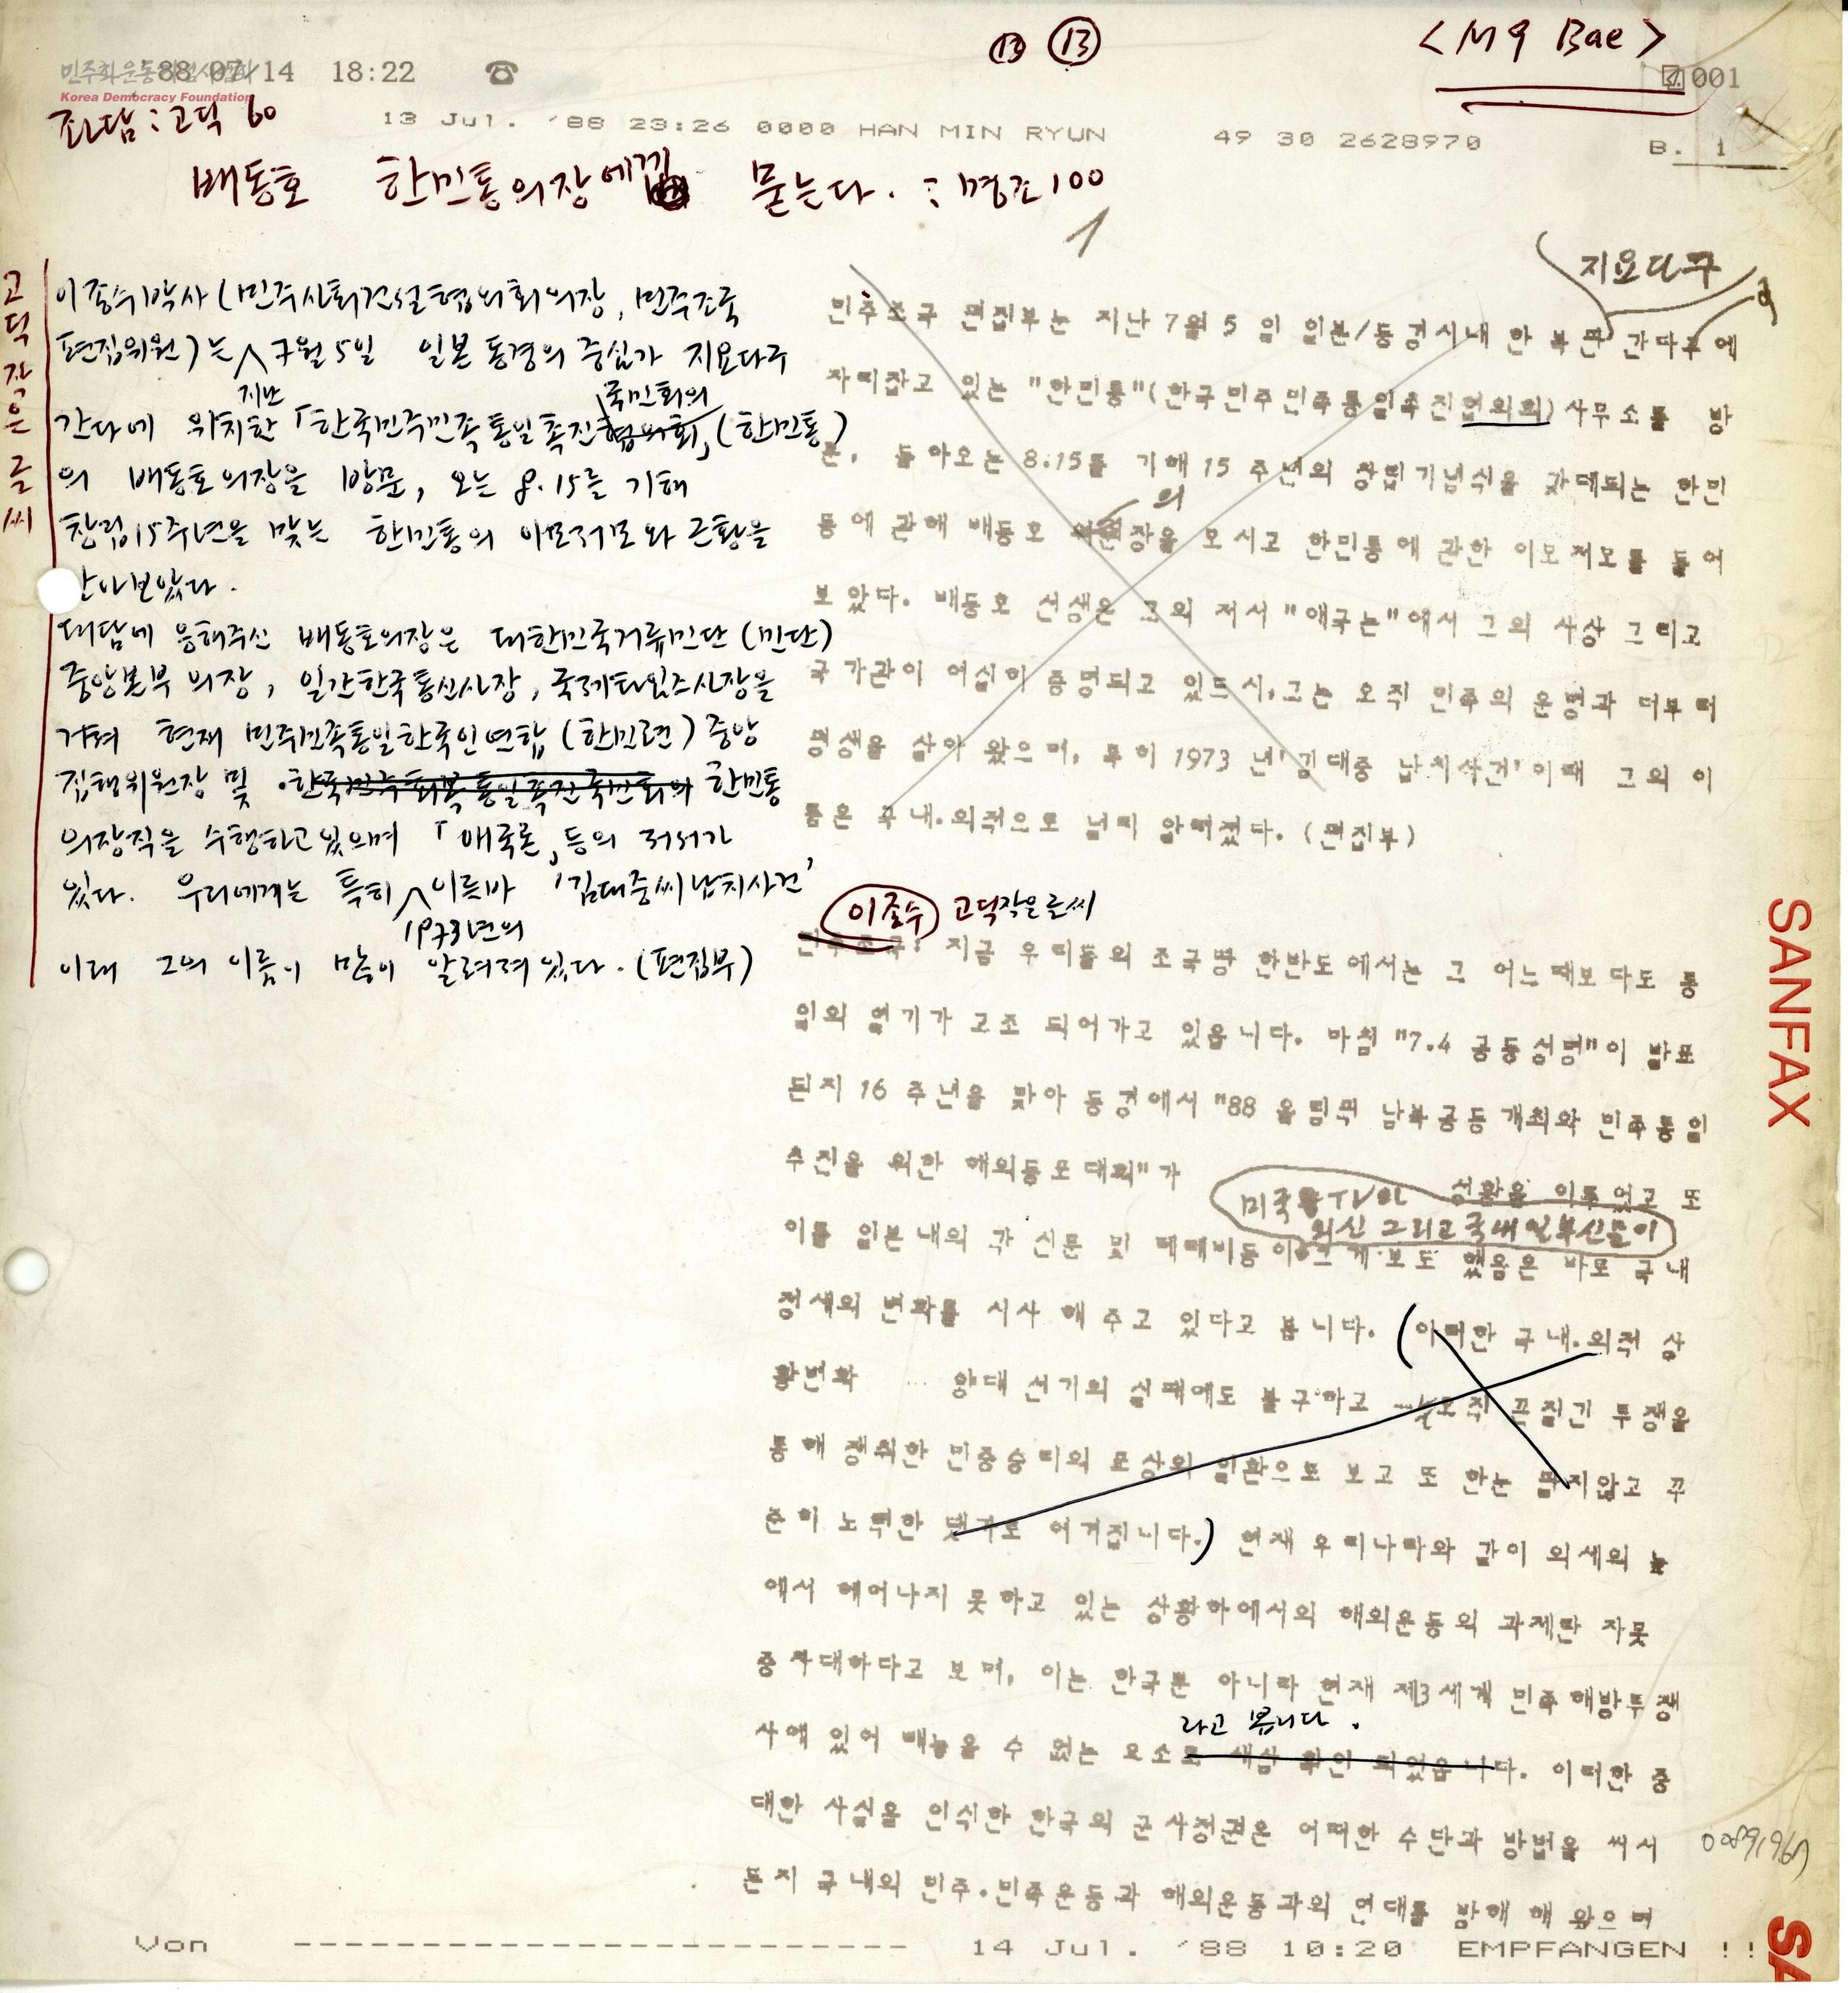 ⑬ ⑬
<M9 Bae>
민주화운동기념사업회
Korea Democracy Foundation
88 07/14 18:22 ☎ 001
좌담: 고딕 60
13 Jul. '88 23:26 0000 HAN MIN RYUN 49 30 2628970 B. 1
배동호 한민통의장에게 묻는다. : 명조100
1
고딕작은글씨
이종수박사(민주사회건설협의회의장, 민주조국
편집위원)는 지난 7월 5일 일본 동경의 중심가 지요다구
간다에 위치한 「한국민주민족통일촉진협의회」(한민통)
국민회의
의 배동호의장을 방문, 오는 8.15를 기해
창립15주년을 맞는 한민통의 이모저모와 근황을
알아보았다.
대담에 응해주신 배동호의장은 대한민국거류민단(민단)
중앙본부 의장, 일간한국통신사장, 국제타임즈사장을
거쳐 현재 민주민족통일한국인연합(한민련) 중앙
집행위원장 및 한국민주회복통일촉진국민회의 한민통
의장직을 수행하고 있으며 「애국론」등의 저서가
있다. 우리에게는 특히 1973년의 이른바 '김대중씨납치사건'
이래 그의 이름이 많이 알려져 있다. (편집부)
지요다구
민주조국 편집부는 지난 7월 5일 일본/동경시내 한복판 간다구에
자리잡고 있는 "한민통"(한국민주민주통일추진협의회)사무소를 방
문, 돌아오는 8.15를 기해 15 주년의 창립기념식을 갖게되는 한민
통에 관해 배동호 의장을 모시고 한민통에 관한 이모저모를 들어
보았다. 배동호 선생은 그의 저서 "애국논"에서 그의 사상 그리고
국가관이 여실히 증명되고 있드시, 그는 오직 민주의 운명과 더부러
평생을 살아 왔으며, 특히 1973 년 '김대중 납치사건'이래 그의 이
름은 국내.외적으로 널리 알려졌다. (편집부)
이종수 고딕작은글씨
민주조국: 지금 우리들의 조국땅 한반도에서는 그 어느때보다도 통
일의 열기가 고조 되어가고 있읍니다. 마침 "7.4 공동성명"이 발표
된지 16 주년을 맞아 동경에서 "88 올림픽 남북공동개최와 민주통일
추진을 위한 해외동포대회"가 성황을 이루었고 또
미국 TV와
외신 그리고 국내일부신문이
이를 일본내의 각 신문 및 테레비등이 크게 보도 했음은 바로 국내
정세의 변화를 시사 해 주고 있다고 봅니다. (이러한 국내.외적 상
황변화 양대 선거의 실패에도 불구하고 오직 끈질긴 투쟁을
통해 쟁취한 민중승리의 표상의 일환으로 보고 또 한눈 팔지않고 꾸
준히 노력한 댓가로 여겨집니다.) 현재 우리나라와 같이 외세의 늪
에서 헤어나지 못하고 있는 상황하에서의 해외운동의 과제란 자못
중차대하다고 보며, 이는 한국뿐 아니라 현재 제3세계 민족해방투쟁
라고 봅니다.
사에 있어 빼놓을 수 없는 요소로 새삼 확인 되었읍니다. 이러한 중
대한 사실을 인식한 한국의 군사정권은 어떠한 수단과 방법을 써서
든지 국내의 민주.민족운동과 해외운동과의 연대를 방해 해 왔으며
00891967
Von -------------------------- 14 Jul. '88 10:20 EMPFANGEN !!
SANFAX
SA